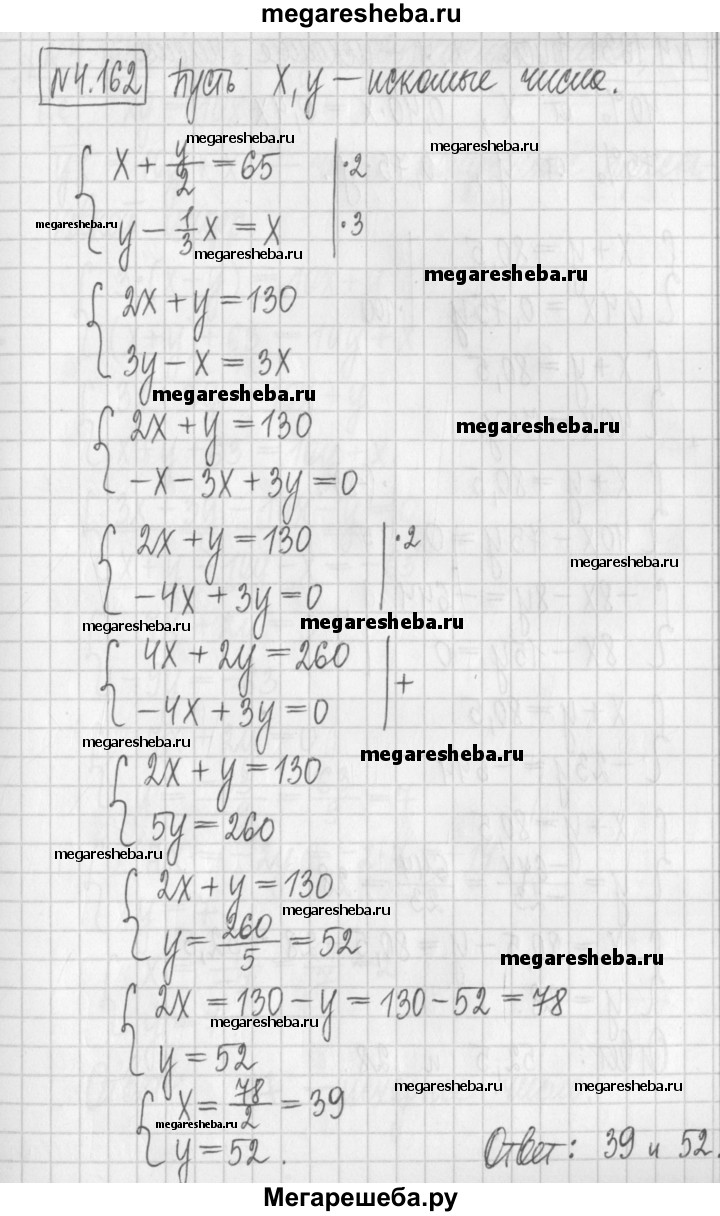 megaresheba.ru
№4.162 Пусть x, y – искомые числа.
megaresheba.ru
megaresheba.ru
{ x + y/2 = 65 | ·2
megaresheba.ru
y – 1/3 x = x | ·3
megaresheba.ru
megaresheba.ru
{ 2x + y = 130
3y – x = 3x
megaresheba.ru
{ 2x + y = 130
megaresheba.ru
–x – 3x + 3y = 0
{ 2x + y = 130 | ·2
megaresheba.ru
–4x + 3y = 0
megaresheba.ru
megaresheba.ru
{ 4x + 2y = 260 | +
–4x + 3y = 0
megaresheba.ru
megaresheba.ru
{ 2x + y = 130
5y = 260
megaresheba.ru
{ 2x + y = 130
megaresheba.ru
y = 260/5 = 52
megaresheba.ru
{ 2x = 130 – y = 130 – 52 = 78
megaresheba.ru
y = 52
megaresheba.ru
megaresheba.ru
{ x = 78/2 = 39
megaresheba.ru
y = 52. Ответ: 39 и 52.
Мегарешеба.ру